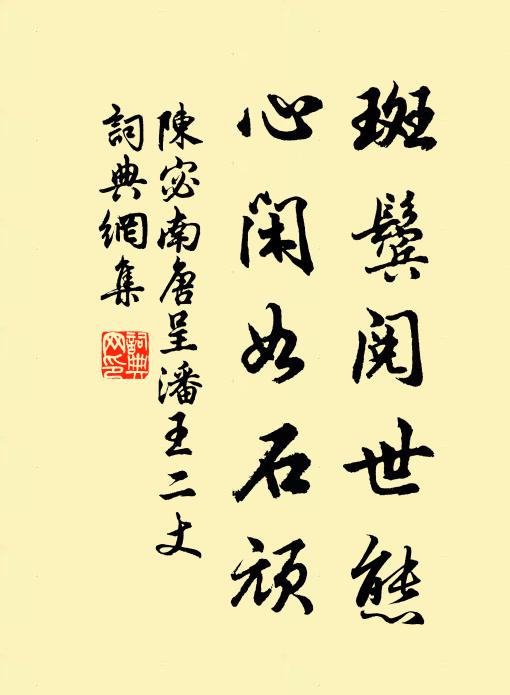 斑鬢閱世態
心閑如石頑
陳宓南唐呈潘王二丈
詞典網集
詞典網印